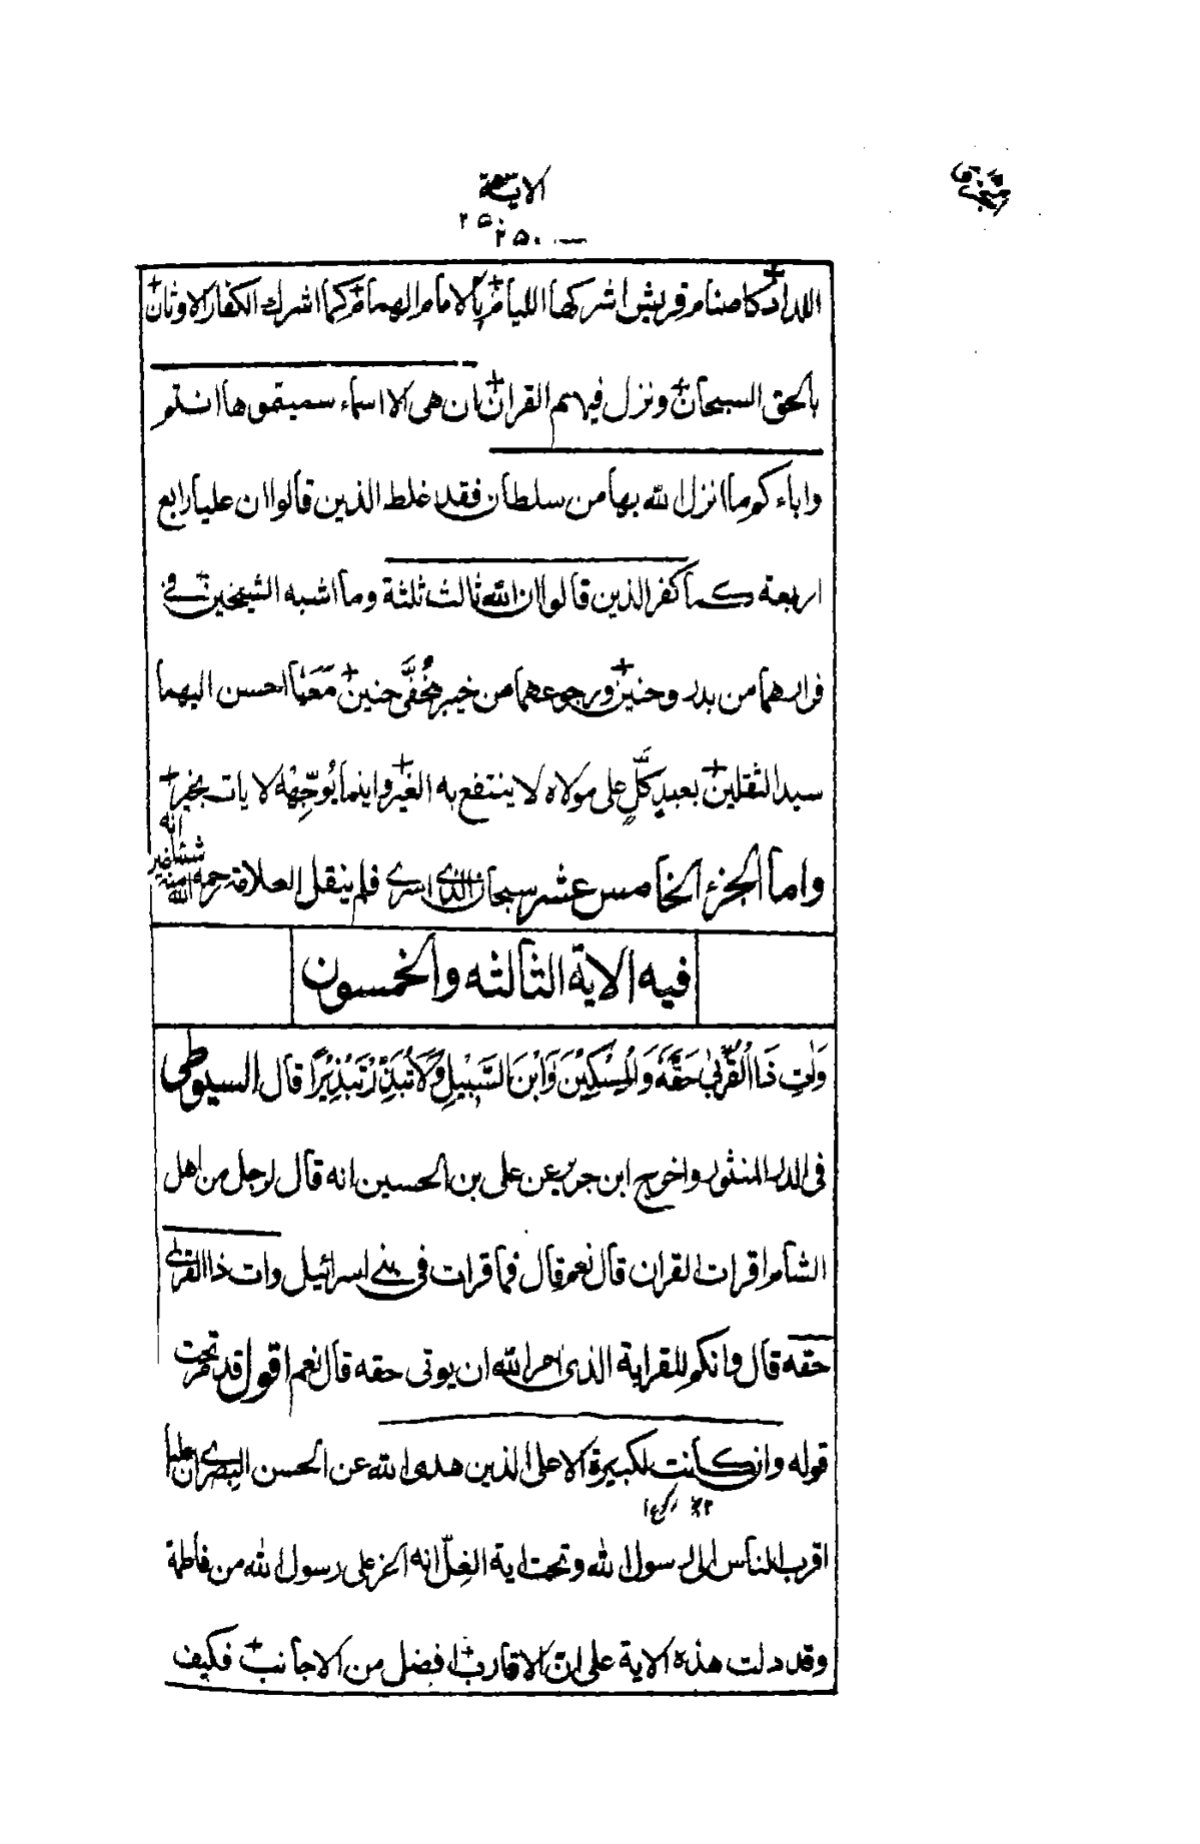 الاية
٢٥٠
٢٥٠
اللداد كاصنام قريش اشركها الليام بالامام الهمام كما اشرك الكفار الاوثان
بالحق السبحان ونزل فيهم القران ان هى الا اسماء سميتموها انتم
واباءكم ما انزل الله بها من سلطان فقد غلط الذين قالوا ان عليا رابع
اربعة كما كفر الذين قالوا ان الله ثالث ثلثة وما اشبه الشيخين فى
فرارهما من بدر وحنين ورجوعهما من خيبر بخُفَّى حنين مَعَ ما احسن اليهما
سيد الثقلين بعبدٍ كَلٍّ على مولاه لا ينتفع به الغير واينما يُوَجِّهْهُ لا يات بخير
واما الجزء الخامس عشر سبحان الذى اسرى فلم ينقل العلامة رحمه الله منه
فيه الاية الثالثه والخمسون
وَاٰتِ ذَا الْقُرْبٰى حَقَّهٗ وَالْمِسْكِيْنَ وَابْنَ السَّبِيْلِ وَلَا تُبَذِّرْ تَبْذِيْرًا قال السيوطى
فى الدر المنثور واخرج ابن جرير عن على بن الحسين انه قال لرجل من اهل
الشام اقرات القران قال نعم قال فما قرات فى بنى اسرائيل وات ذا القربى
حقه قال وانكم للقرابة الذى امر الله ان يوتى حقه قال نعم اقول قد مر تحت
قوله وان كانت لكبيرة الا على الذين هدى الله عن الحسن البصرى ان عليا
اقرب الناس الى رسول الله وتحت اية الغِلّ انه اعز على رسول الله من فاطمة
وقد دلت هذه الاية على ان الاقارب افضل من الاجانب فكيف